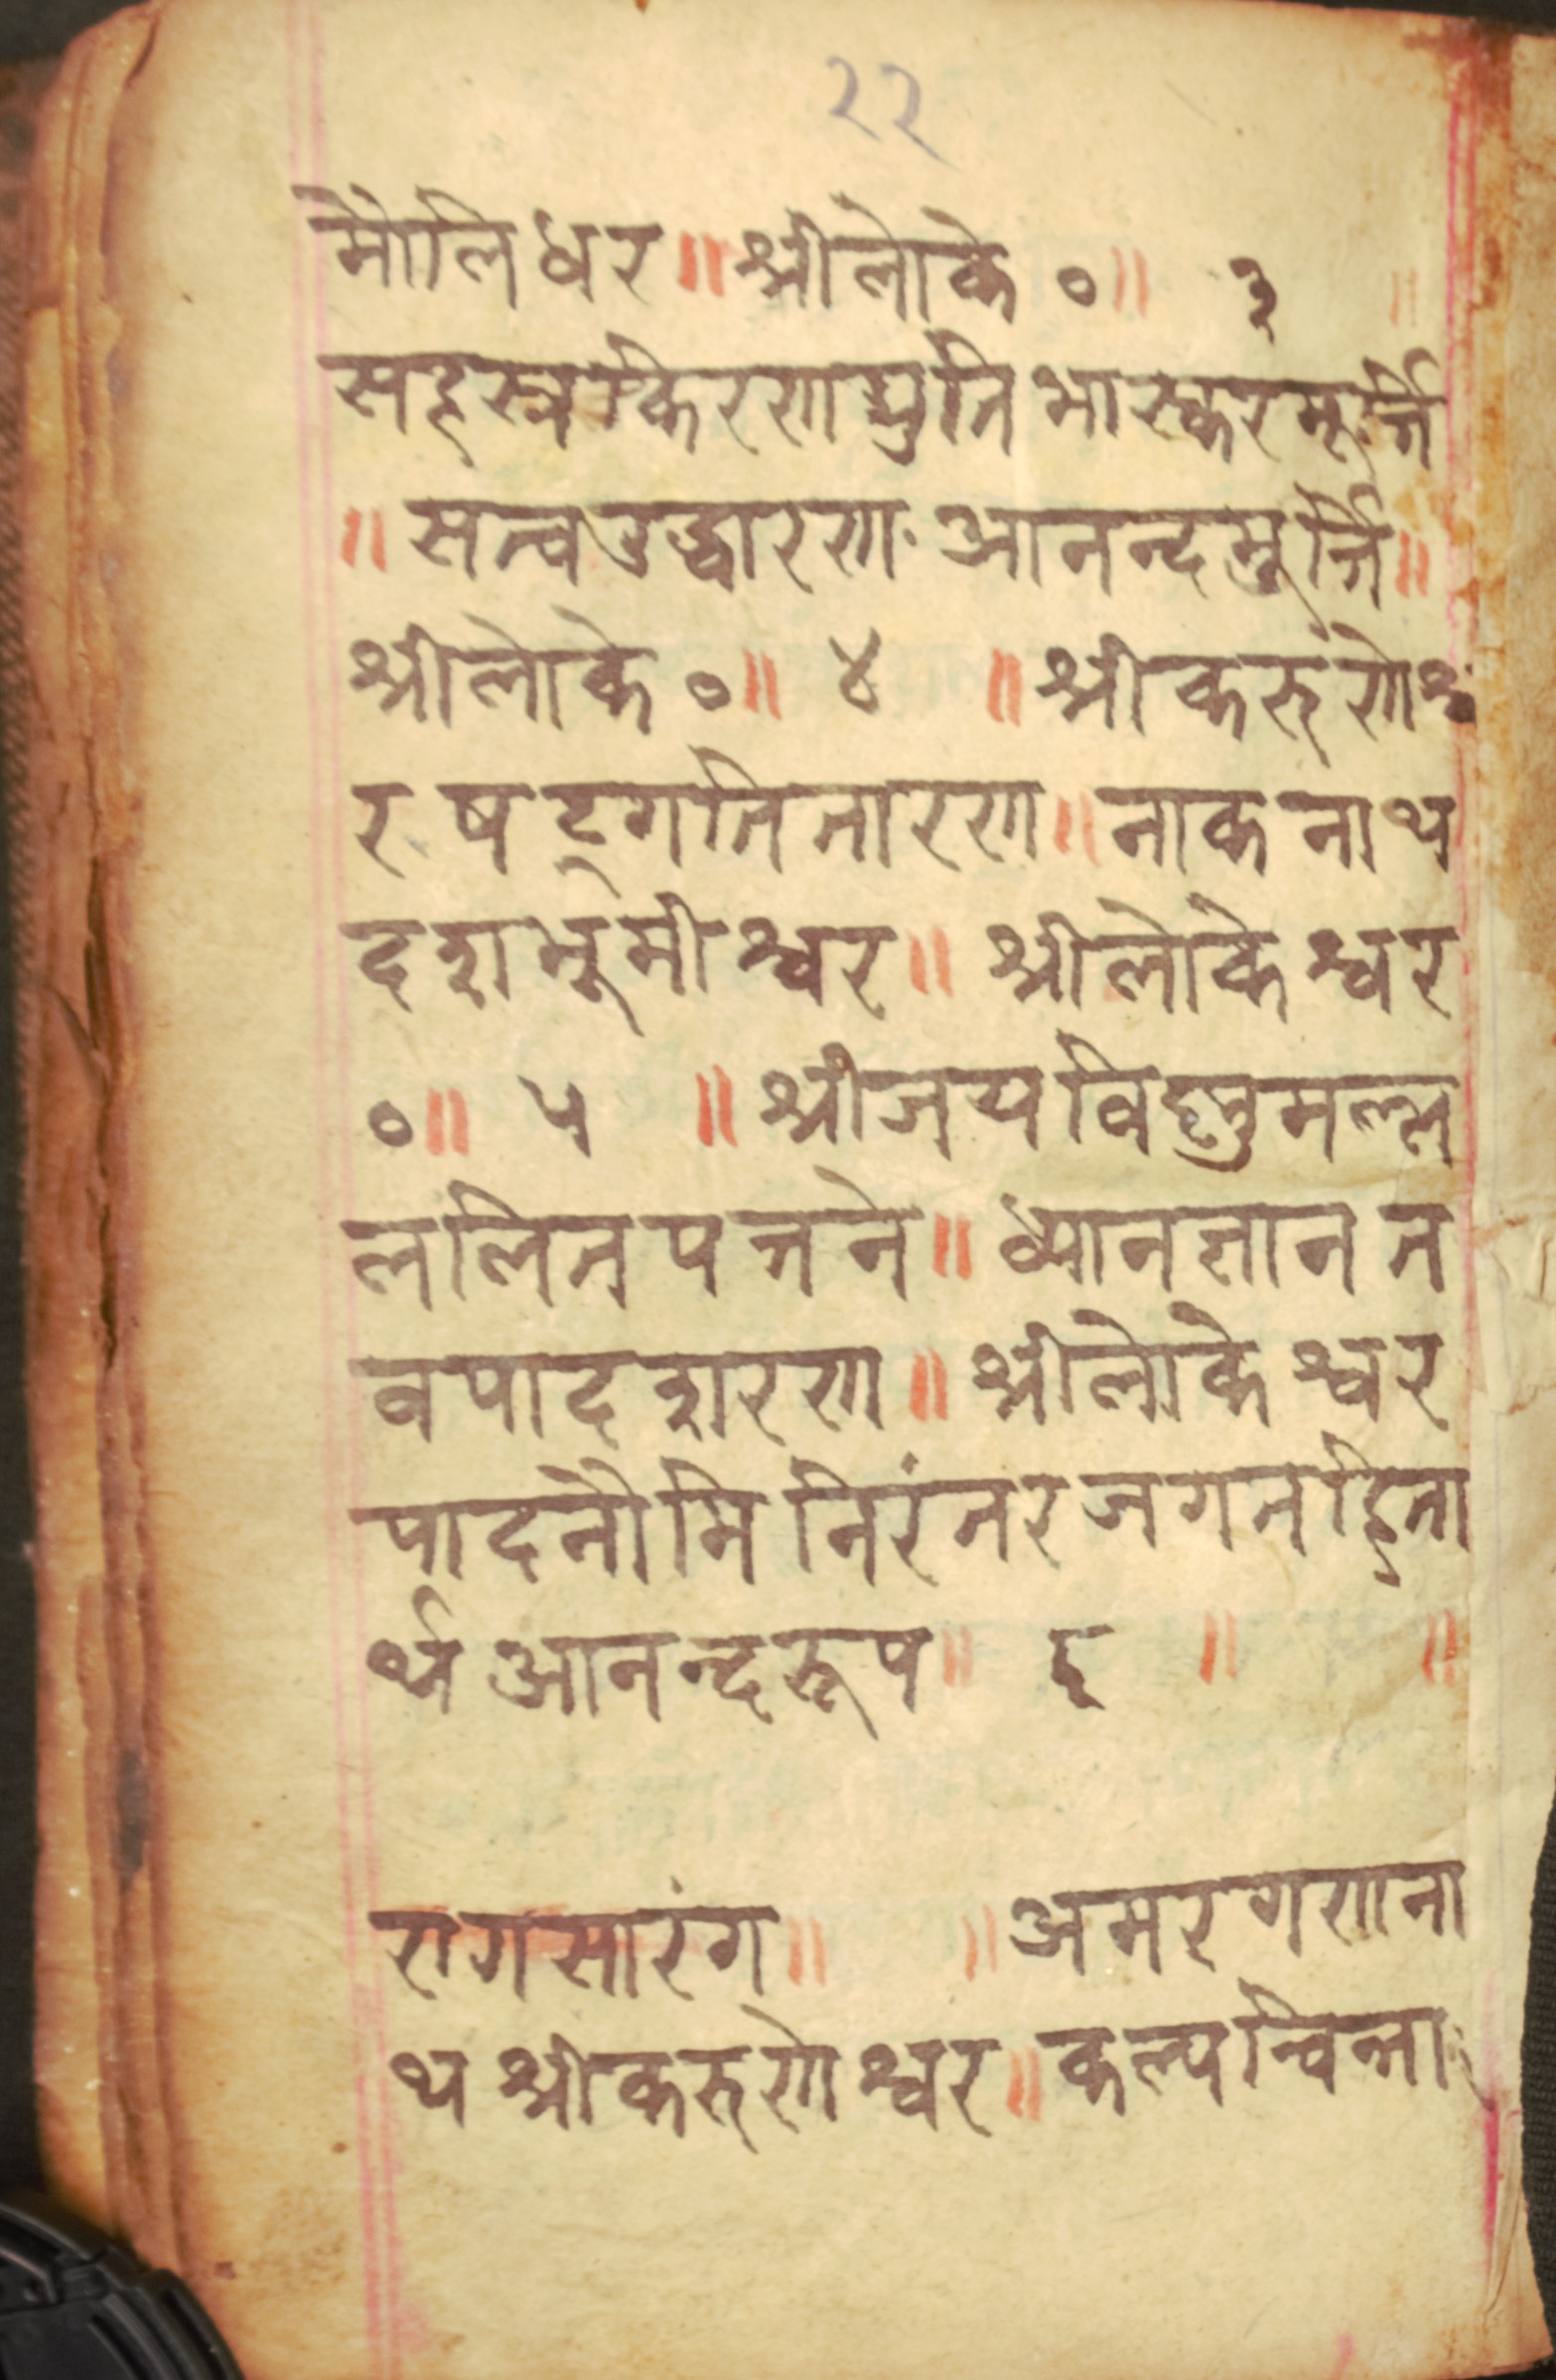 २२
मौलिधर ॥ श्रीलोके ० ॥ ३ ॥
सहस्त्रकिरणद्युतिभास्करमूर्त्ति
॥ सत्वउद्धारण आनन्दमुर्त्ति ॥
श्रीलोके ० ॥ ४ ॥ श्रीकरुंणेश्व
र षट्गतितारण ॥ नाकनाथ
दशभूमीश्वर ॥ श्रीलोकेश्वर
० ॥ ५ ॥ श्रीजयविष्णुमल्ल
ललितपत्तने ॥ ध्यानज्ञानत
वपादशरण ॥ श्रीलोकेश्वर
पादनौमि निरंतर जगतहिता
र्थ आनन्दरूप ॥ ६ ॥ ॥
रागसारंग ॥ ॥ अमरगणना
थ श्रीकरुणेश्वर ॥ कल्पचिन्ता